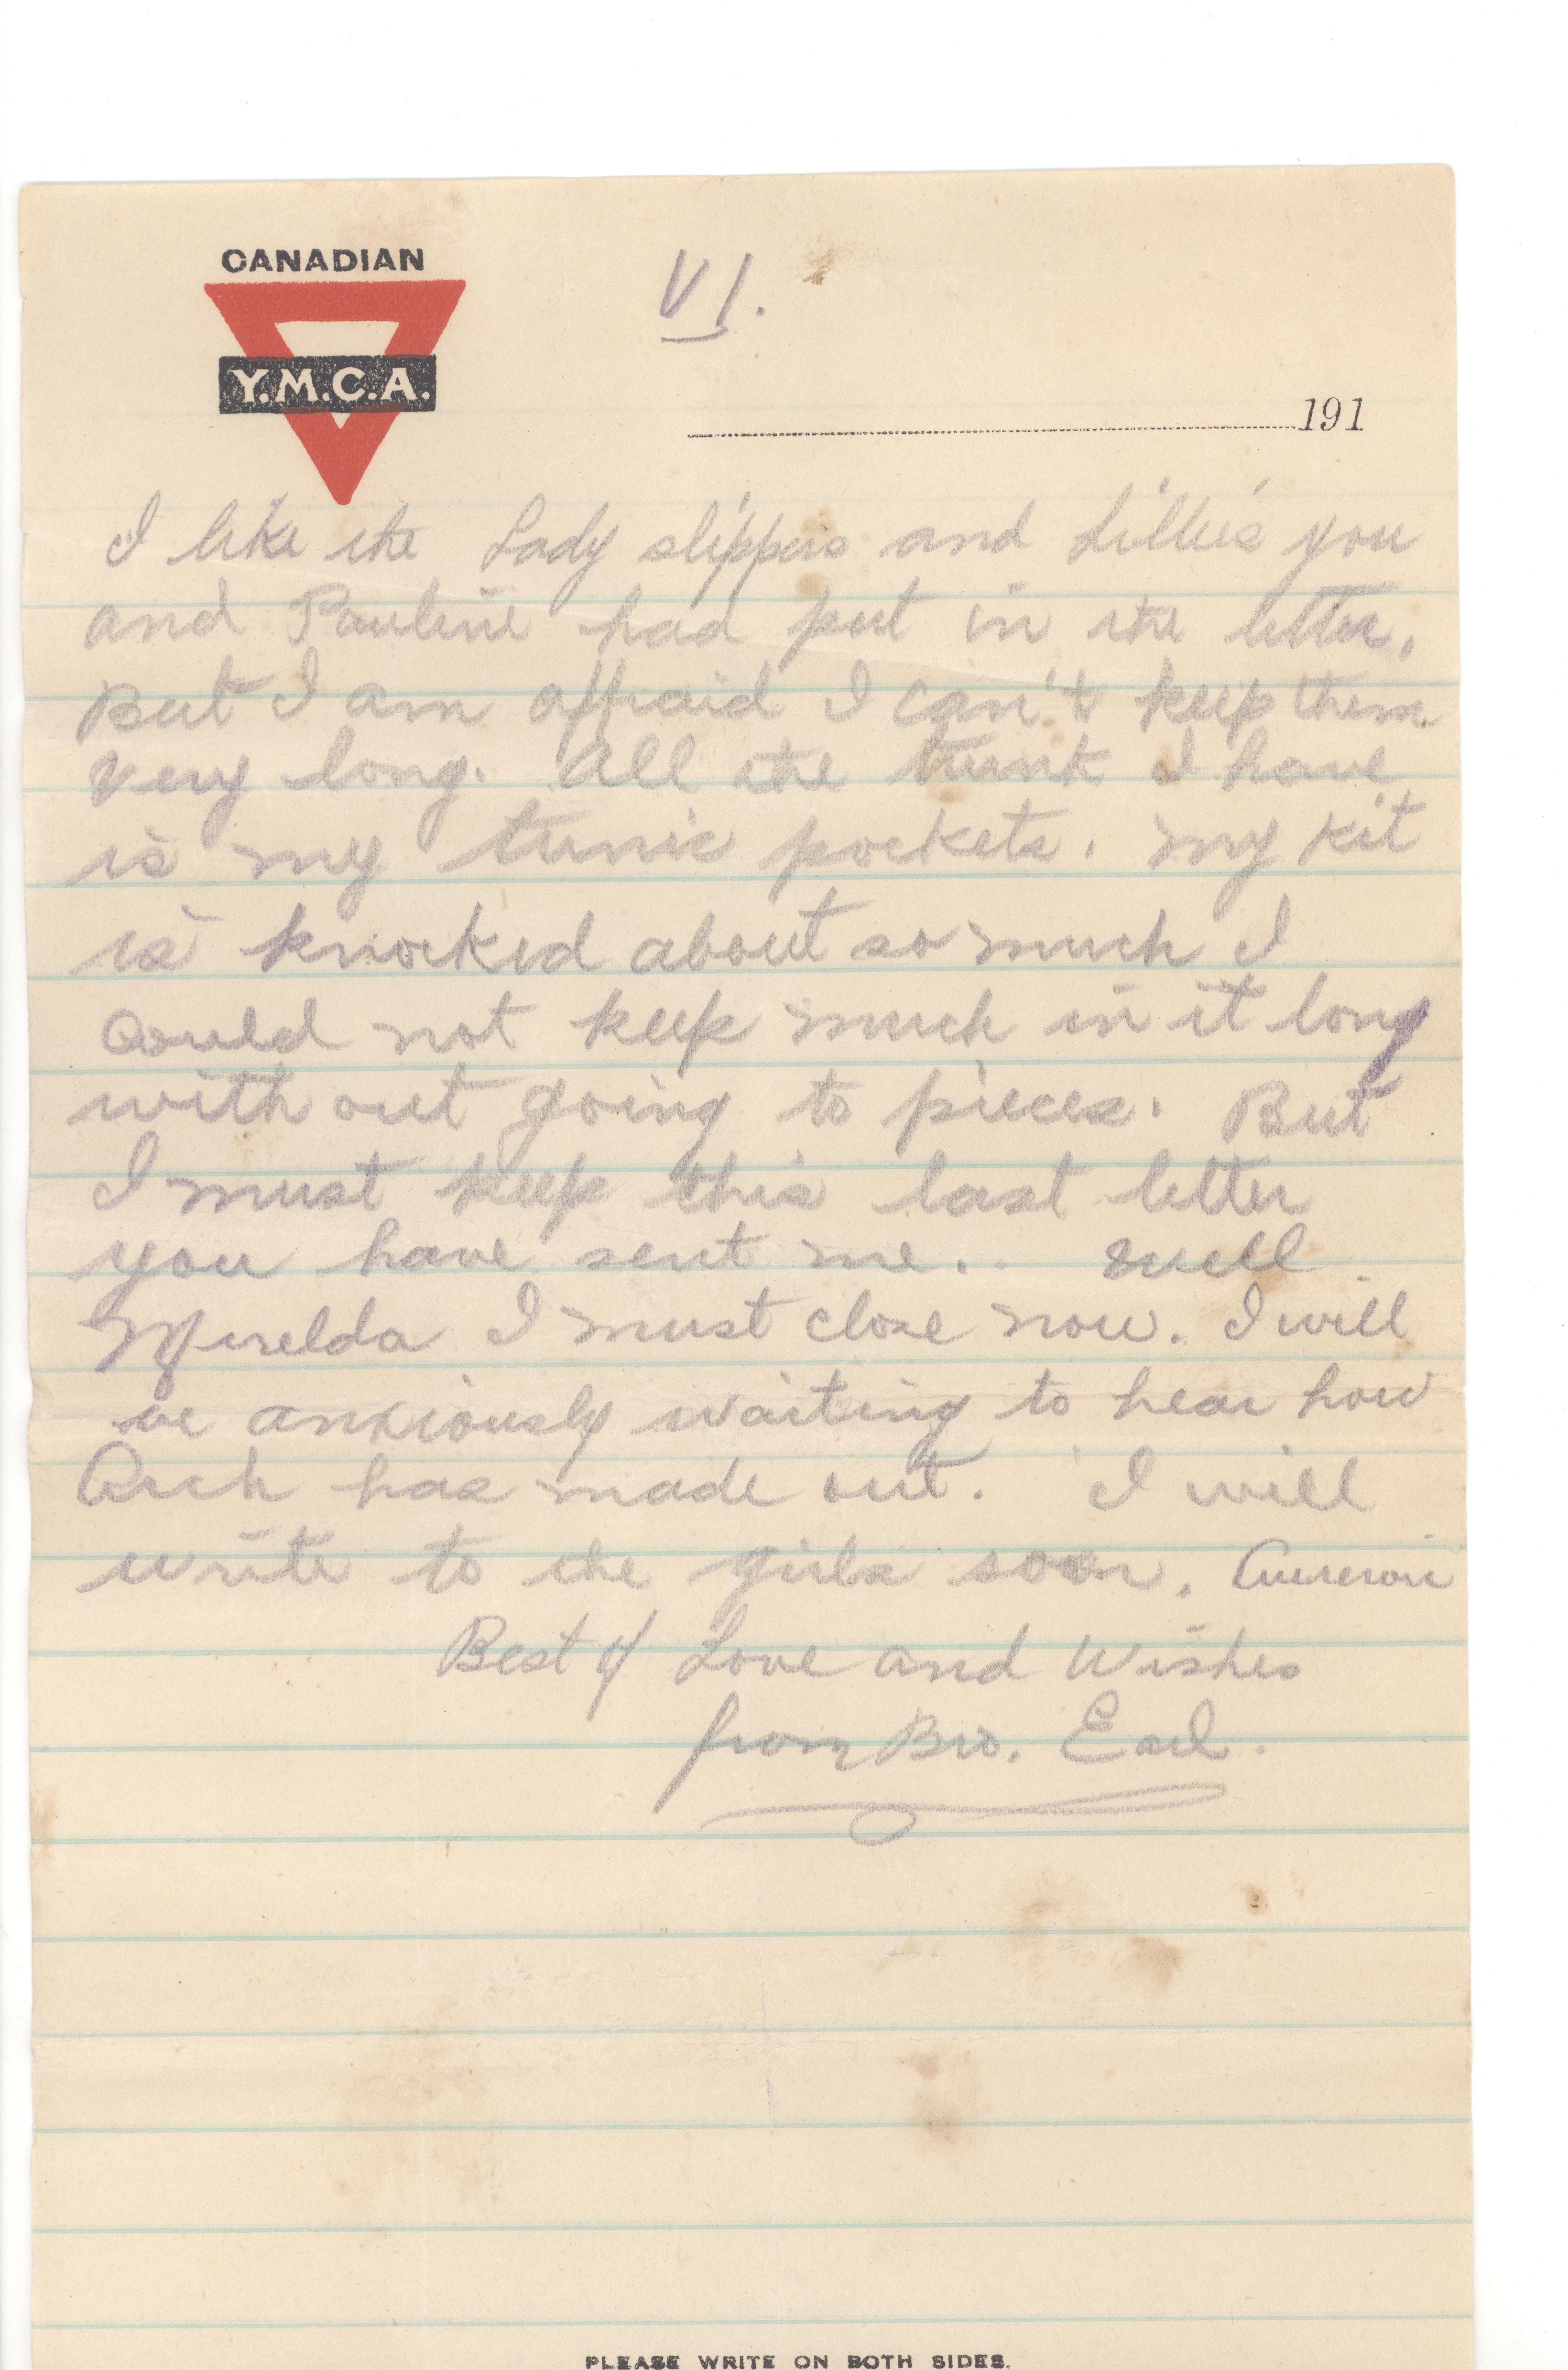 CANADIAN
Y.M.C.A.
VI.
191
I like the Lady slippers and Lillie's you
and Pauline had put in the letter.
But I am affraid I can't keep them
very long. All the trunk I have
is my tunic pockets. My kit
is knocked about so much I
could not keep much in it long
with out going to pieces. But
I must keep this last letter
you have sent me.. Well
I must close now. I will
be anxiously waiting to hear how
Arch has made out. I will
write to the girls soon.
Best of Love and Wishes
from Bro. Earl.
PLEASE WRITE ON BOTH SIDES.